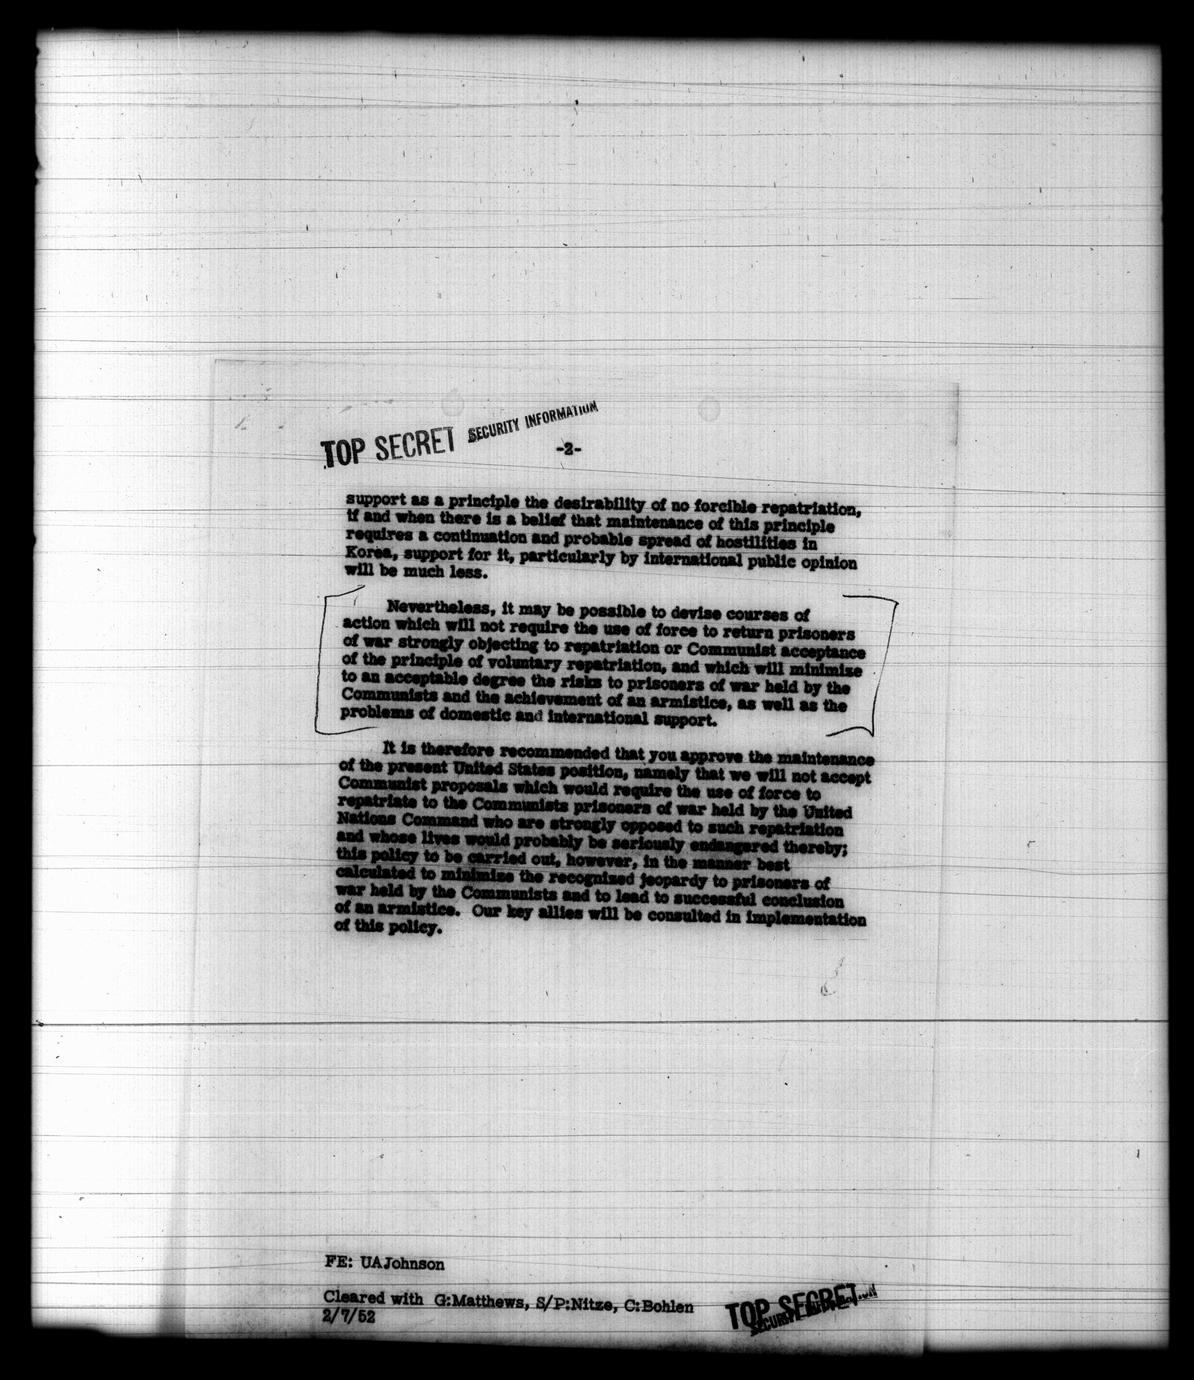 TOP SECRET SECURITY INFORMATION
-2-
support as a principle the desirability of no forcible repatriation,
if and when there is a belief that maintenance of this principle
requires a continuation and probable spread of hostilities in
Korea, support for it, particularly by international public opinion
will be much less.
Nevertheless, it may be possible to devise courses of
action which will not require the use of force to return prisoners
of war strongly objecting to repatriation or Communist acceptance
of the principle of voluntary repatriation, and which will minimize
to an acceptable degree the risks to prisoners of war held by the
Communists and the achievement of an armistice, as well as the
problems of domestic and international support.
It is therefore recommended that you approve the maintenance
of the present United States position, namely that we will not accept
Communist proposals which would require the use of force to
repatriate to the Communists prisoners of war held by the United
Nations Command who are strongly opposed to such repatriation
and whose lives would probably be seriously endangered thereby;
this policy to be carried out, however, in the manner best
calculated to minimize the recognized jeopardy to prisoners of
war held by the Communists and to lead to successful conclusion
of an armistice. Our key allies will be consulted in implementation
of this policy.
FE: UAJohnson
Cleared with G:Matthews, S/P:Nitze, C:Bohlen
2/7/52
TOP SECRET